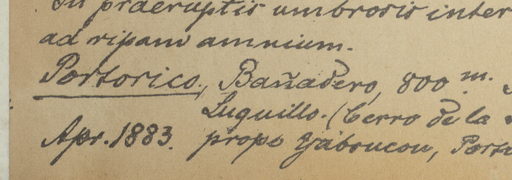 In praeruptis umbrosis inter
ad ripam amnium.
Portorico, Bañadero, 800 m.
Luquillo. (Cerro de la
Apr. 1883. prope Yaboucou, Porto